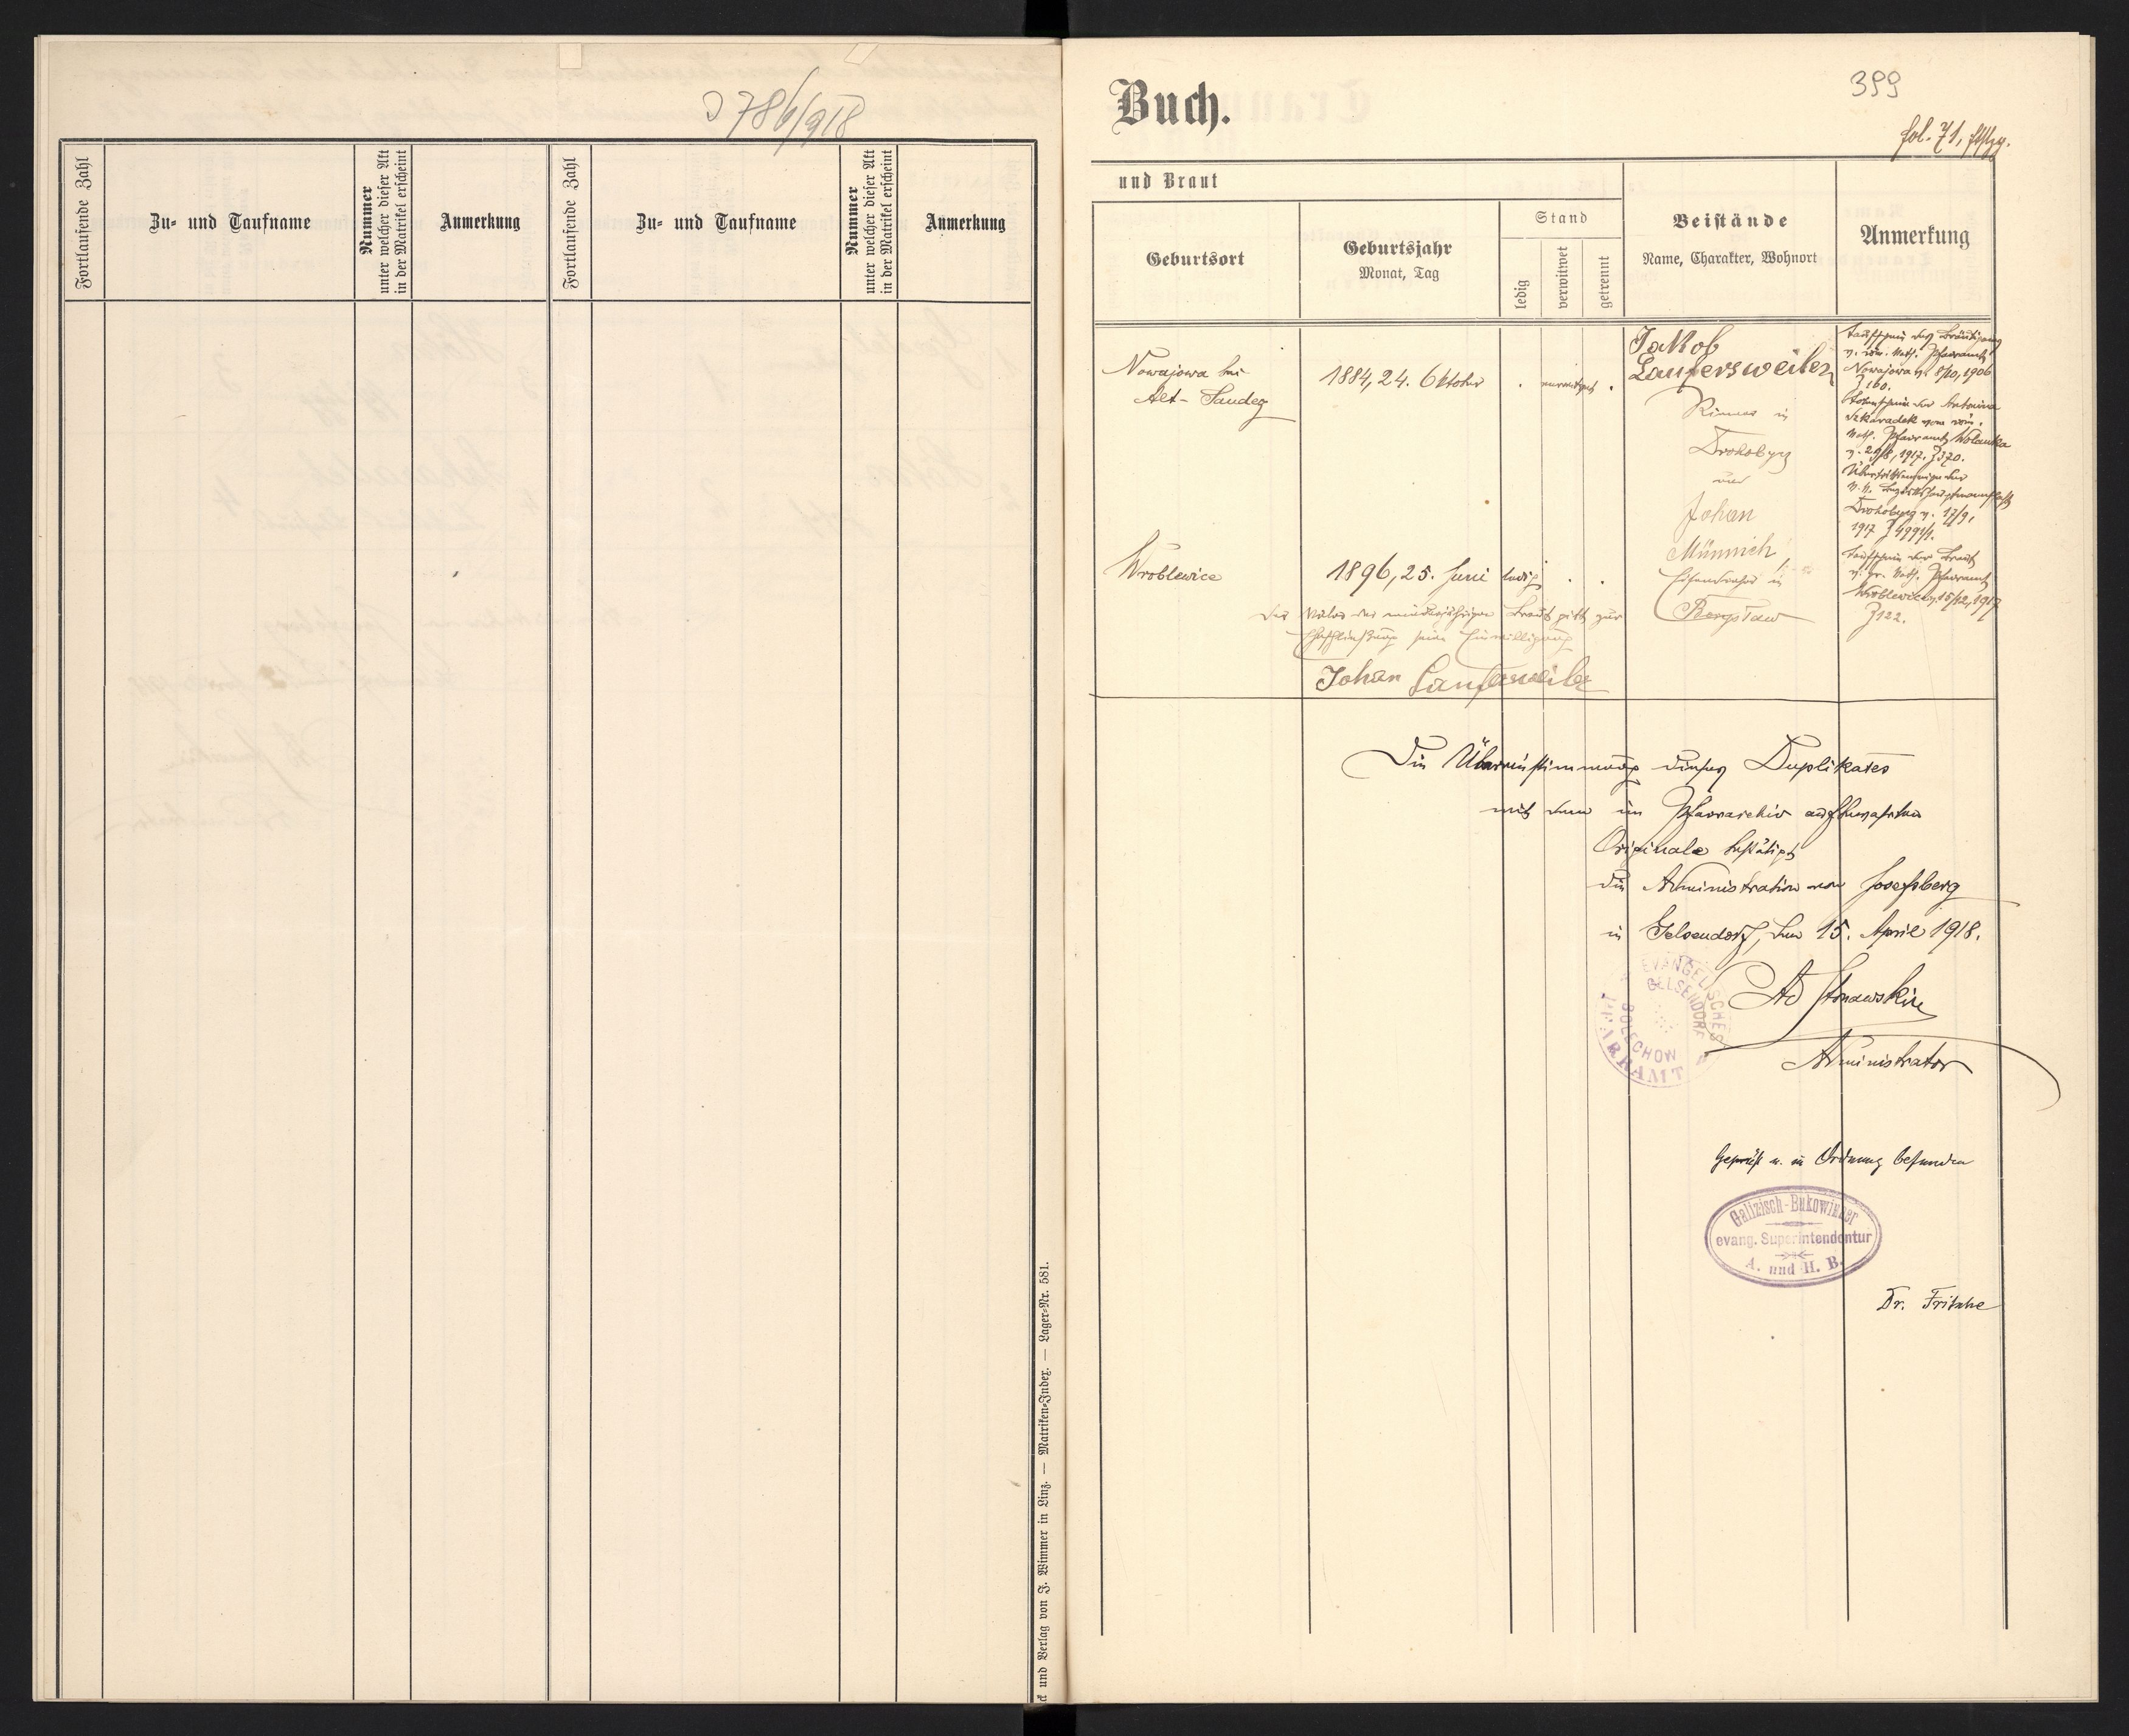 J 786/918
Fortlaufende Zahl
Zu- und Taufname
Nummer
unter welcher dieser Akt
in der Matrikel erscheint
Anmerkung
Fortlaufende Zahl
Zu- und Taufname
Nummer
unter welcher dieser Akt
in der Matrikel erscheint
Anmerkung
und Verlag von F. Wimmer in Linz. — Matriken-Index. — Lager-Nr. 581.
Buch.
399
fol. 71,
und Braut
Geburtsort
Geburtsjahr
Monat, Tag
Stand
ledig
verwitwet
getrennt
Beistände
Name, Charakter, Wohnort
Anmerkung
Nowajowa bei
Alt-Sandez
1884, 24. Oktober
verwitwet
Jakob
Laufersweiler
Riemer in
Drohobycz
und
Johan
Münnich,
in
Taufschein des Bräutigams
v. röm. kath. Pfarramt
Nowajowa v. 8/10, 1906
Z 160.
Totenschein der Antonina
Szkaradek vom röm.
kath. Pfarramt Wolanka
v. 29/8, 1917. Z 370.
Übertrittsanzeige der
k. k. Bezirkshauptmannschaft
Drohobycz v. 17/9,
1917 Z 4991/1.
Taufschein der Braut
v. gr. kath. Pfarramt
Wroblewice v. 15/12, 1917
Z 122.
Wroblewice
1896, 25. Juni
ledig
Der Vater der minderjährigen Braut gibt zur
Eheschließung seine Einwilligung
Johan Laufersweiler
Die Übereinstimmung dieses Duplikates
mit dem im Pfarrarchiv aufbewahrten
Originale bestätigt
die Administration von Josefsberg
in Gelsendorf, den 15. April 1918.
EVANGELISCHES
PFARRAMT
GELSENDORF
BOLECHOW
Ad Stonawski
Administrator
Geprüft u. in Ordnung befunden
Galizisch-Bukowiner
evang. Superintendentur
A. und H. B.
Dr. Fritsche